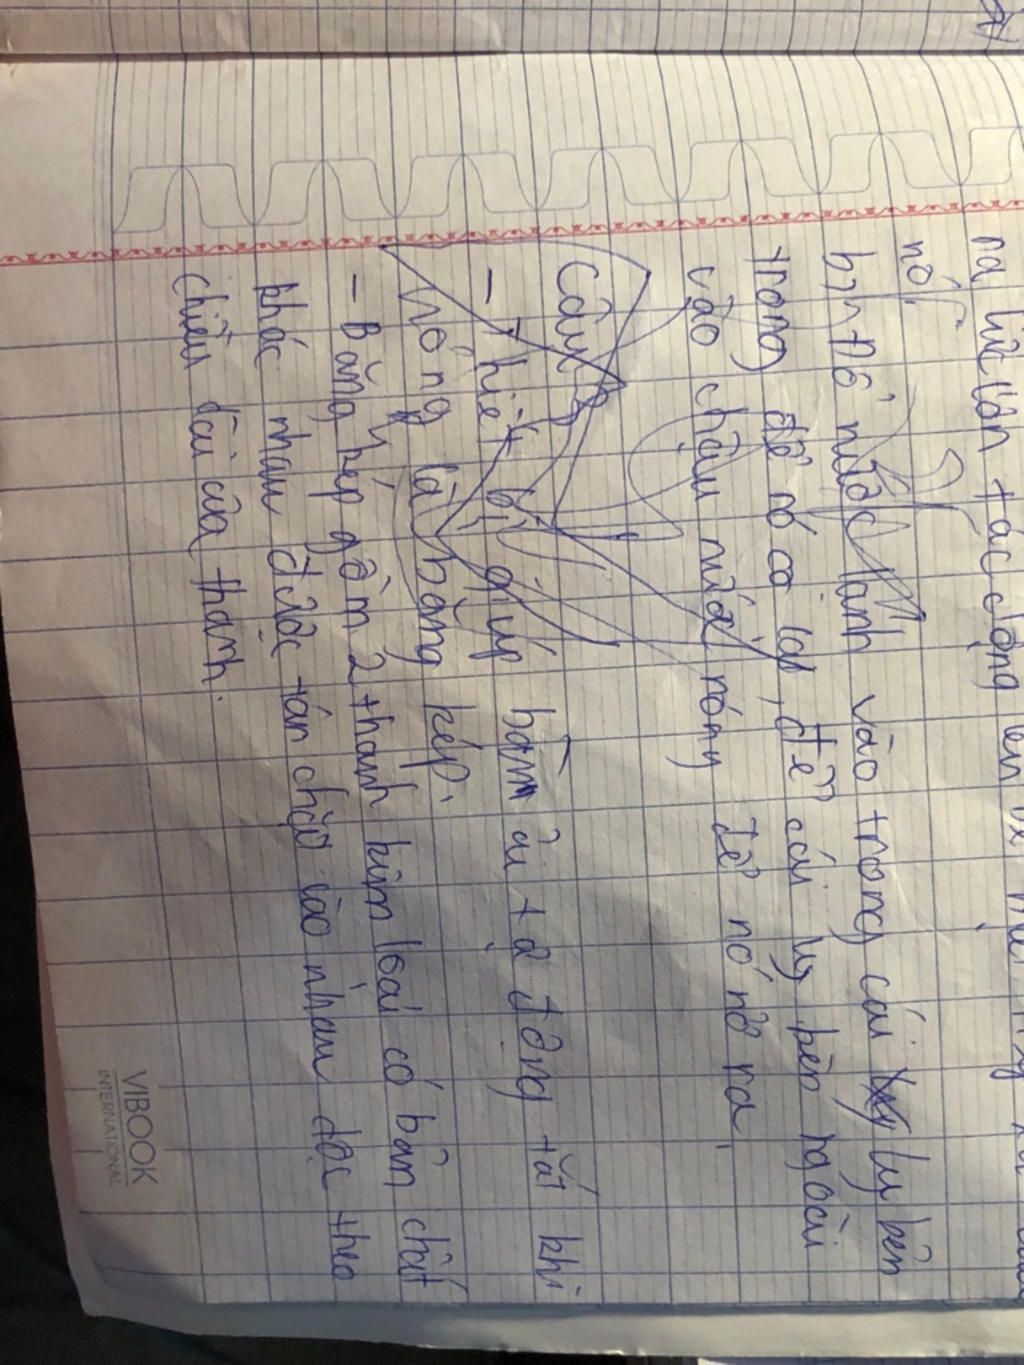 ra lực lớn tác động lên
nó.
b2: Đổ nước lạnh vào trong cái ly bên
trong để nó co lại, để cái ly bên ngoài
vào chậu nước nóng để nó nở ra.
Câu 3
- Thiết bị giúp bàn ủi tự động tắt khi
nóng là băng kép.
- Băng kép gồm 2 thanh kim loại có bản chất
khác nhau được tán chặt vào nhau dọc theo
chiều dài của thanh.
VIBOOK
INTERNATIONAL